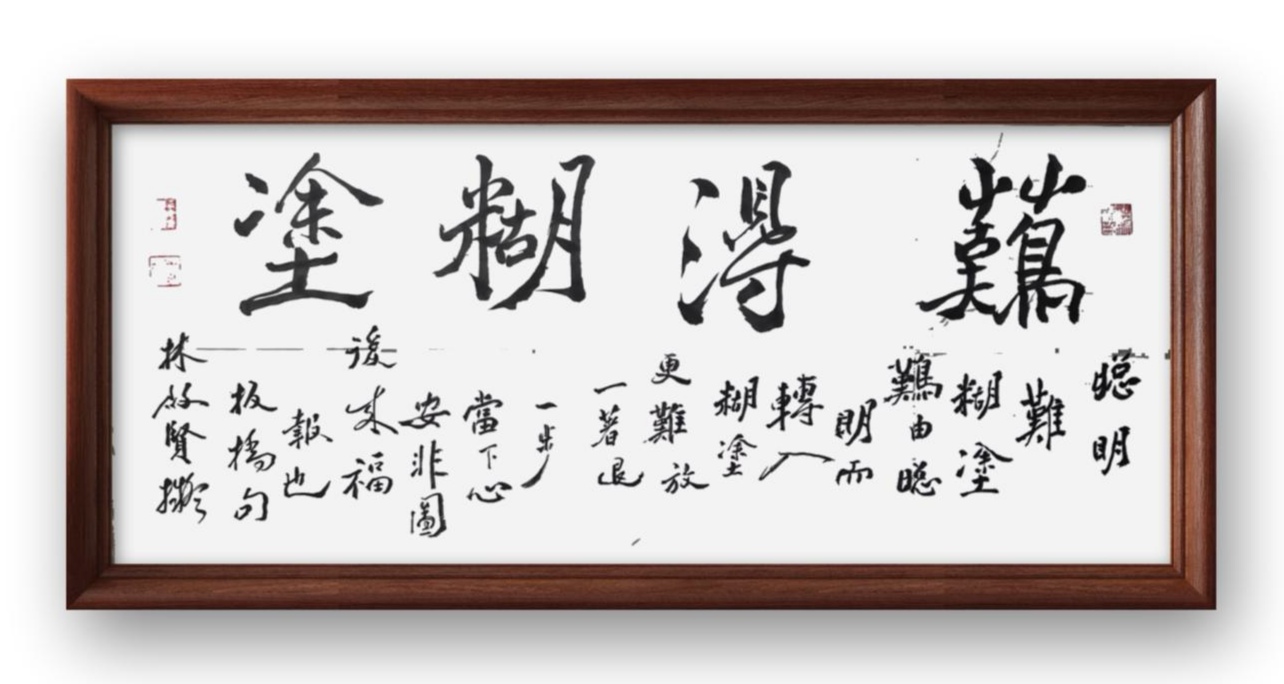 難得糊塗
聰明
難
糊塗
難由聰
明而
轉入
糊塗
更難放
一著退
一步
當下心
安非圖
後来福
報也
板橋句
林賢